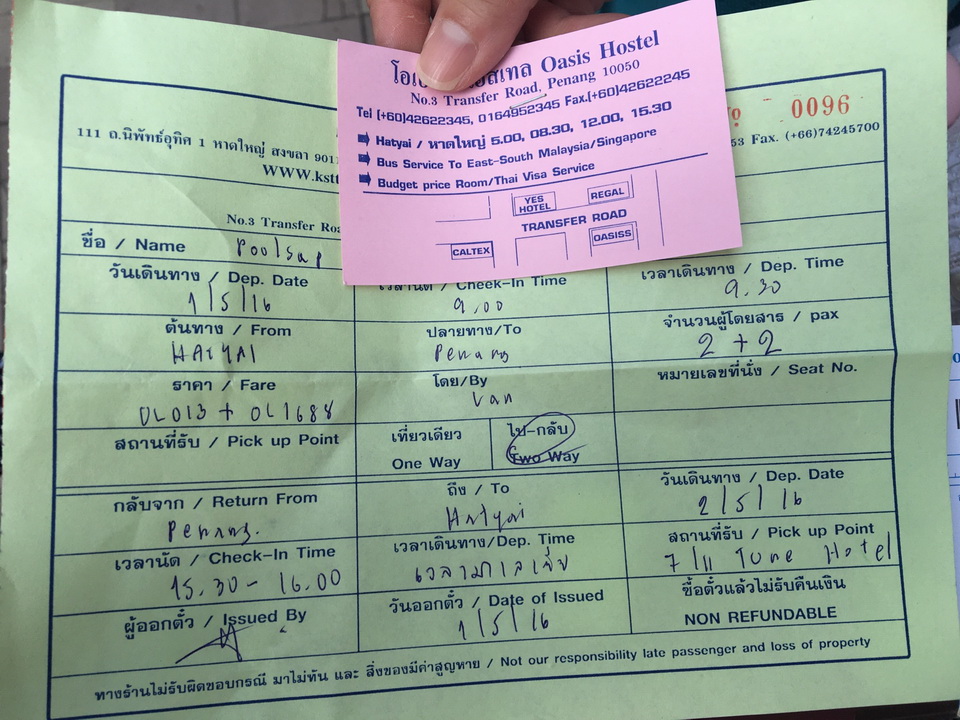 Oasis Hostel
No.3 Transfer Road, Penang 10050
Tel (+60)42622345, 0164952345 Fax.(+60)42622245
Hatyai / หาดใหญ่ 5.00, 08.30, 12.00, 15.30
Bus Service To East-South Malaysia/Singapore
Budget price Room/Thai Visa Service
YES HOTEL
REGAL
TRANSFER ROAD
CALTEX
OASISS
0096
111 ถ.นิพัทธ์อุทิศ 1 หาดใหญ่ สงขลา 901
53 Fax. (+66)74245700
www.kstt
No.3 Transfer Roa
ชื่อ / Name Poolsap
วันเดินทาง / Dep. Date
1/5/16
เวลานัด / Check-In Time
9.00
เวลาเดินทาง / Dep. Time
9.30
ต้นทาง / From
HATYAI
ปลายทาง/To
Penang
จำนวนผู้โดยสาร / pax
2 + 2
ราคา / Fare
OL013 + OL1688
โดย/By
Van
หมายเลขที่นั่ง / Seat No.
สถานที่รับ / Pick up Point
เที่ยวเดียว
One Way
ไป-กลับ
Two Way
กลับจาก / Return From
Penang.
ถึง / To
Hatyai
วันเดินทาง / Dep. Date
2/5/16
เวลานัด / Check-In Time
15.30 - 16.00
เวลาเดินทาง/Dep. Time
เวลามาเลเซีย
สถานที่รับ / Pick up Point
7/11 Tune Hotel
ผู้ออกตั๋ว / Issued By
วันออกตั๋ว / Date of Issued
1/5/16
ซื้อตั๋วแล้วไม่รับคืนเงิน
NON REFUNDABLE
ทางร้านไม่รับผิดขอบกรณี มาไม่ทัน และ สิ่งของมีค่าสูญหาย / Not our responsibility late passenger and loss of property